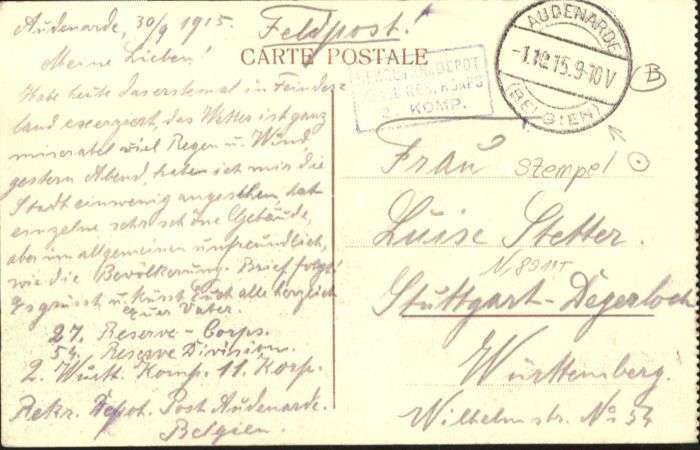 Audenarde, 30/9 1915.
Feldpost!
CARTE POSTALE
Meine Lieben!
Habe heute das erstemal in Feindes-
land exerziert, das Wetter ist ganz
miserabel viel Regen u. Wind,
gestern Abend, haben ich mir die
Stadt ein wenig angesehen, hat
einzelne sehr schöne Gebäude,
aber im allgemeinen unfreundlich,
wie die Bevölkerung. Brief folgt!
Es grüsst u. küsst Euch alle herzlich
Euer Vater.
27. Reserve-Corps.
54. Reserve Division.
2. Württ. Komp. 11. Korp.
Rekr. Depot. Post Audenarde.
Belgien.
DEPOT
RES. KORPS
KOMP.
AUDENARDE
-1.10.15.9-10V
(BELGIEN)
B
Stempel
Frau
Luise Stetter.
N, 8911T
Stuttgart-Degerloch
Württemberg.
Wilhelmstr. No 54